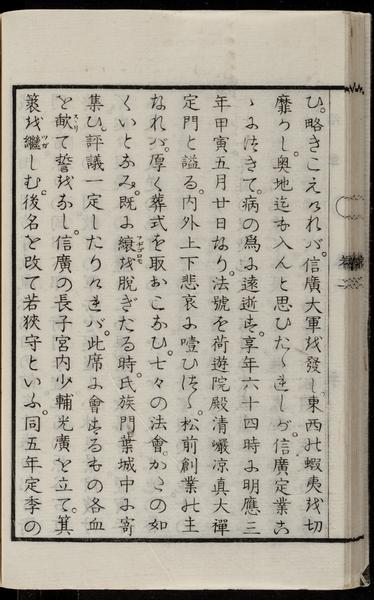 ひ略きこえけれバ信廣大軍を發し東西の蝦夷を切
靡かし奥地迄も入んと思ひたちしが信廣定業こ
ゝにつきて病の爲に遠逝す享年六十四時に明應三
年甲寅五月廿日なり法號を荷遊院殿清巖凉真大禪
定門と謚る内外上下悲哀に噎ひけり松前創業の主
なれバ厚く葬式を取おこなひ七々の法會かたの如
くいとなみ既に縗を脱ぎたる時氏族門葉城中に寄
集ひ評議一定したりけれバ此席に會するもの各血
を歃て誓をなし信廣の長子宮内少輔光廣を立て箕
裘を繼しむ後名を改て若狹守といふ同五年定季の